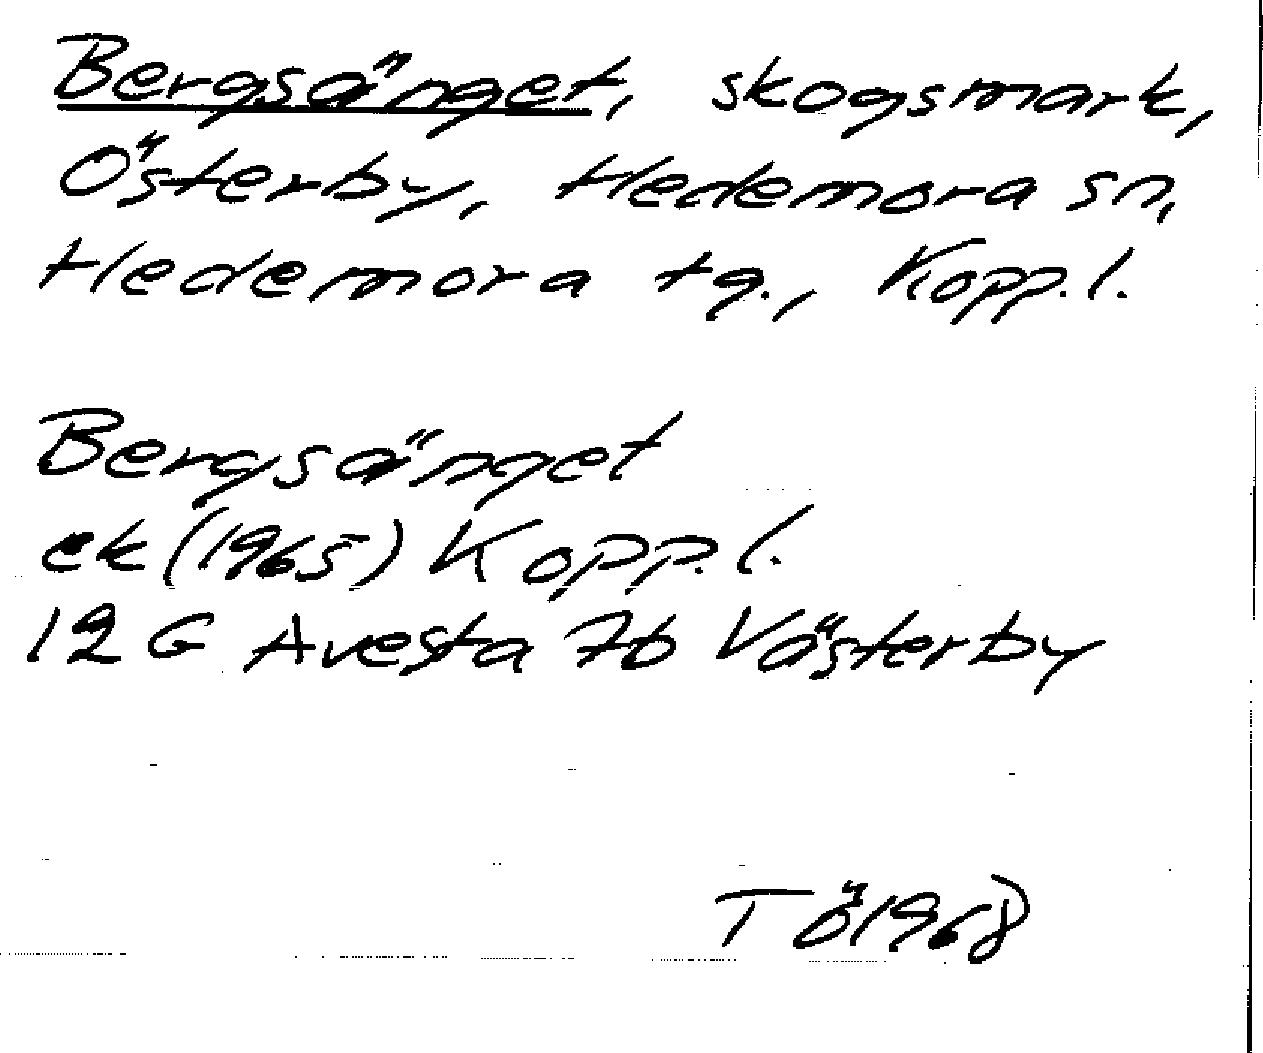 Bergsänget, skogsmark,
Österby, Hedemora sn,
Hedemora tg., Kopp.l.
Bergsänget
ek (1965) Kopp.l.
12 G Avesta 7b Västerby
TÖ 1968